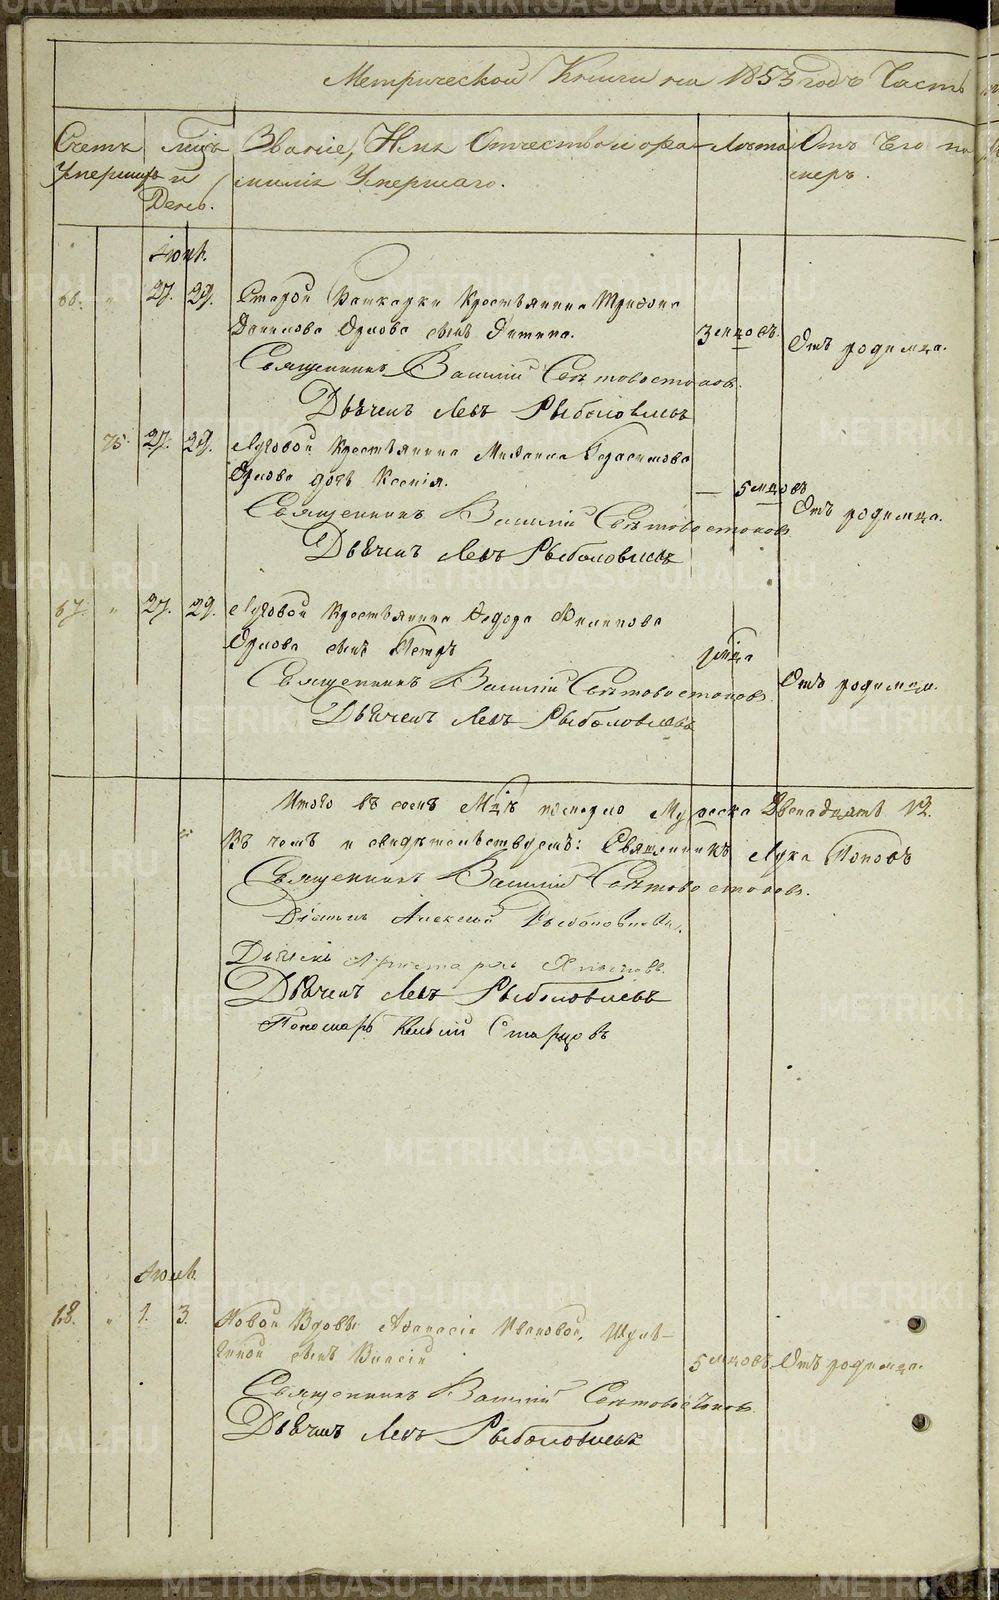 Метрической Книги на 1853 годъ Часть
Счетъ Умершихъ
Мцъ и День.
Званіе, Имя Отчество и фамилія Умершаго.
Лѣта
Отъ Чего померъ.
Іюнь.
66. " 27. 29. Старой крестьянина Трифона
Данилова Орлова сынъ
3 мцовъ. Отъ родимца.
Священникъ Василій
Дьячекъ Левъ Рыболовлевъ
75. 27. 29. Луговой крестьянина Герасимова
Орлова дочь Ксенія.
— 5 мцовъ Отъ родимца.
Священникъ Василій
Дьячекъ Левъ Рыболовлевъ
67. " 27. 29. Луговой крестьянина Ѳедора Филипова
Орлова сынъ Петръ
1 мца Отъ родимца.
Священникъ Василій
Дьячекъ Левъ Рыболовлевъ
Итого въ семъ Мцѣ померло Мужеска Двенадцать 12.
Въ чемъ и свидѣтельствуемъ: Священникъ Лука Поповъ
Священникъ Василій
Діаконъ Алексѣй Рыболовлевъ.
Дьячекъ Аристархъ
Дьячекъ Левъ Рыболовлевъ
Пономарь Старцовъ
Іюль.
68. " 1. 3. Новой Вдовы Афанасіи Ивановой,
сынъ Василій
5 мцовъ. Отъ родимца.
Священникъ Василій
Дьячекъ Левъ Рыболовлевъ
METRIKI.GASO-URAL.RU